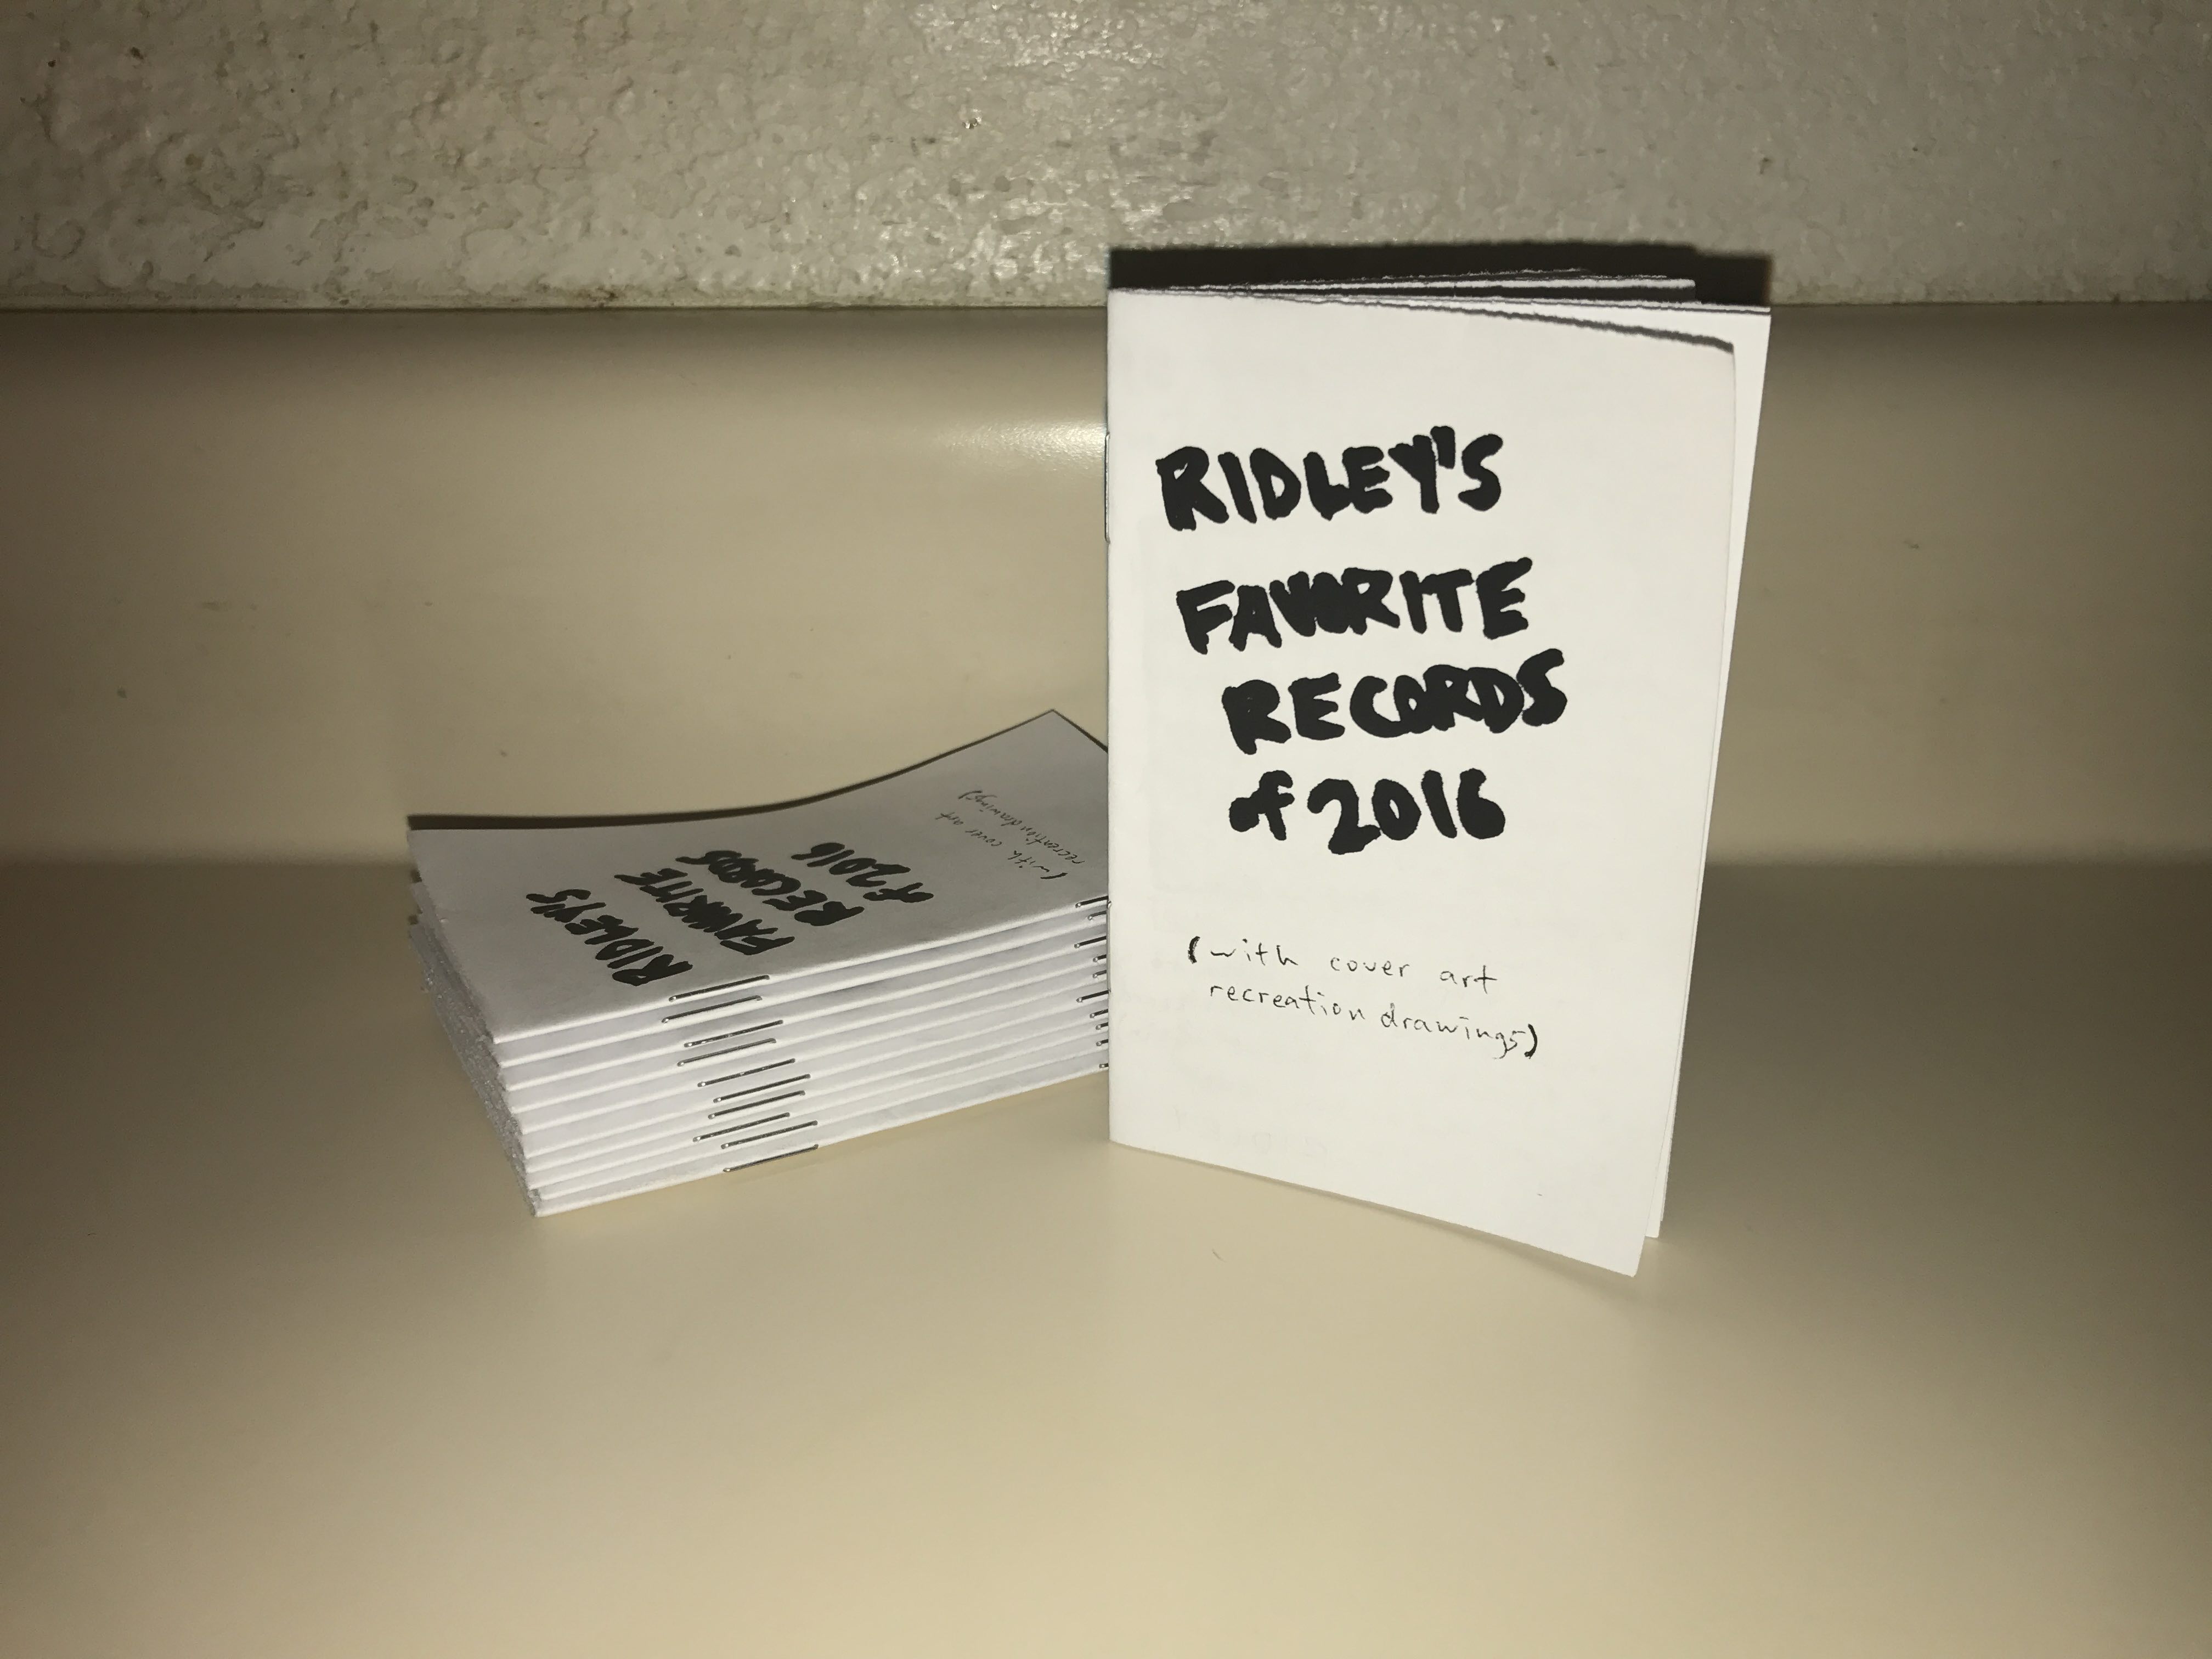 RIDLEY'S
FAVORITE
RECORDS
of 2016
(with cover art
recreation drawings)
RIDLEY'S
FAVORITE
RECORDS
of 2016
(with cover art
recreation drawings)